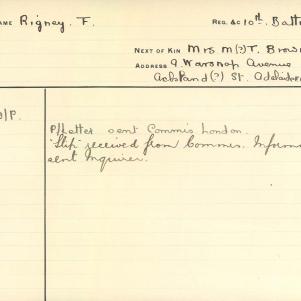 NAME Rigney. F. REG. &c 10th. Batt
NEXT OF KIN Mrs M(?)T. Brow
ADDRESS 9 Warsnop Avenue
Ashland(?) St. Adelaide
/P.
P/Letter sent Commis London.
"Slip" received from Commss. Informa
sent Inquirer.